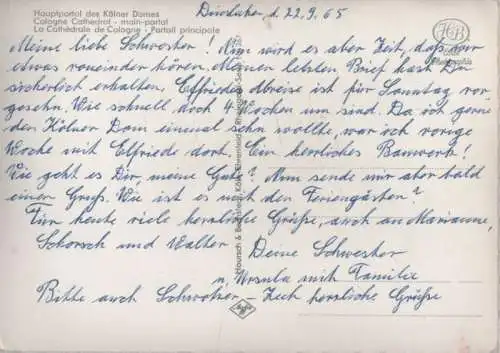 Hauptportal des Kölner Domes
Cologne Cathedral - main-portal
La Cathédrale de Cologne - Portail principale
d. 22.9.65
Meine liebe Schwester! Nun wird es aber Zeit, daß wir
etwas voneinder hören. Meinen letzten Brief hast Du
sicherlich erhalten. Elfriedes Abreise ist für Sonntag vor
gesehn. Wie schnell doch 4 Wochen um sind. Da ich gerne
den Kölner Dom einmal sehn wollte, war ich vorige
Woche mit Elfriede dort. Ein herrliches Bauwerk!
Wie geht es Dir, meine Gute? Nun sende mir aber bald
einen Gruß. Wie ist es mit den Feriengästen?
Für heute viele herzliche Grüße, auch an Marianne,
Schorsch und Walter Deine Schwester
u. Ursula mit Familie
Bitte auch herzliche Grüße